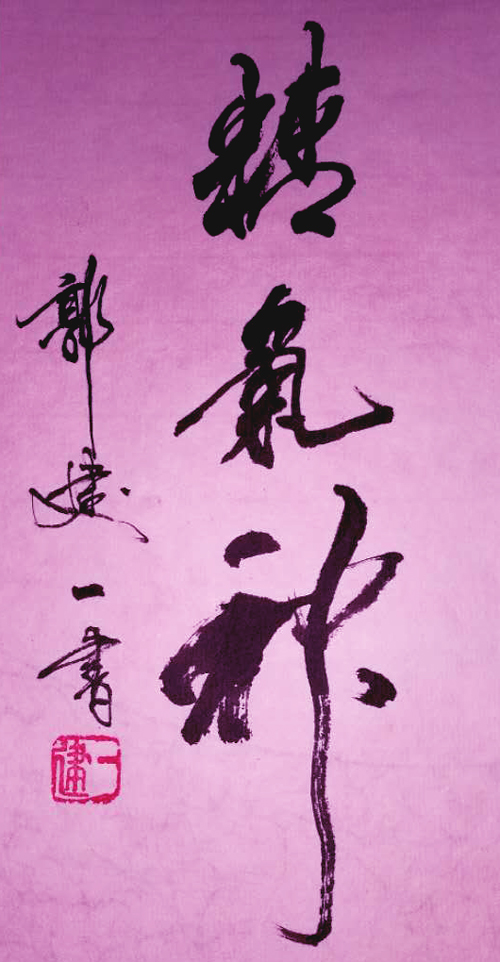 精氣神
郭建一書